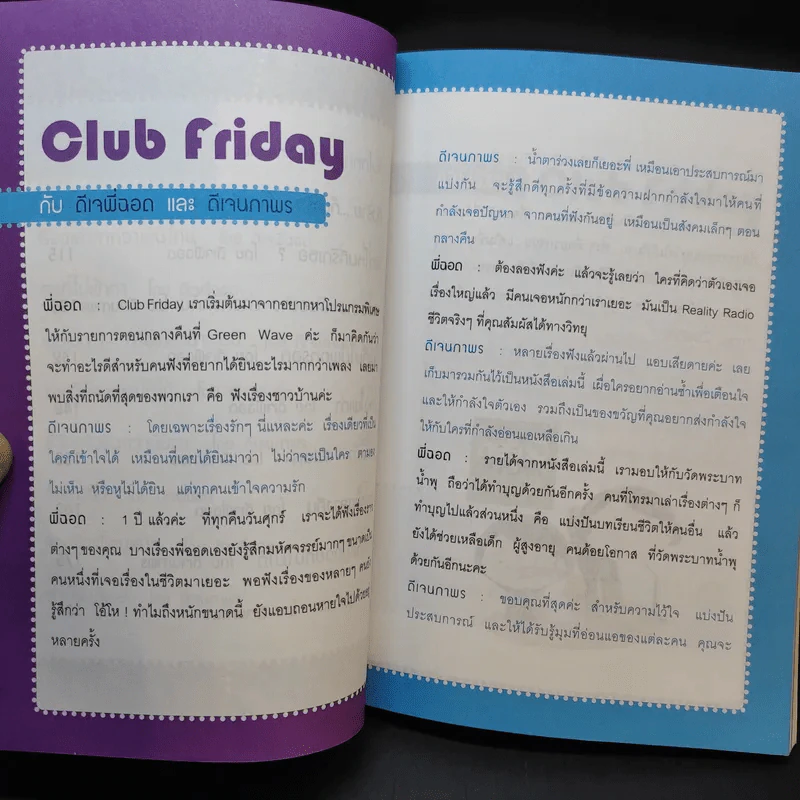 Club Friday
กับ ดีเจพี่ฉอด และ ดีเจนภาพร
พี่ฉอด : Club Friday เราเริ่มต้นมาจากอยากหาโปรแกรมพิเศษ
ให้กับรายการตอนกลางคืนที่ Green Wave ค่ะ ก็มาคิดกันว่า
จะทำอะไรดีสำหรับคนฟังที่อยากได้ยินอะไรมากกว่าเพลง เลยมา
พบสิ่งที่ถนัดที่สุดของพวกเรา คือ ฟังเรื่องชาวบ้านค่ะ
ดีเจนภาพร : โดยเฉพาะเรื่องรักๆ นี่แหละค่ะ เรื่องเดียวที่เป็น
ใครก็เข้าใจได้ เหมือนที่เคยได้ยินมาว่า ไม่ว่าจะเป็นใคร ตามอง
ไม่เห็น หรือหูไม่ได้ยิน แต่ทุกคนเข้าใจความรัก
พี่ฉอด : 1 ปี แล้วค่ะ ที่ทุกคืนวันศุกร์ เราจะได้ฟังเรื่องราว
ต่างๆ ของคุณ บางเรื่องพี่ฉอดเองยังรู้สึกมหัศจรรย์มากๆ ขนาดเป็น
คนหนึ่งที่เจอเรื่องในชีวิตมาเยอะ พอฟังเรื่องของหลายๆ คนยัง
รู้สึกว่า โอ้โห ! ทำไมถึงหนักขนาดนี้ ยังแอบถอนหายใจไปด้วย
หลายครั้ง
ดีเจนภาพร : น้ำตาร่วงเลยก็เยอะพี่ เหมือนเอาประสบการณ์มา
แบ่งกัน จะรู้สึกดีทุกครั้งที่มีข้อความฝากกำลังใจมาให้คนที่
กำลังเจอปัญหา จากคนที่ฟังกันอยู่ เหมือนเป็นสังคมเล็กๆ ตอน
กลางคืน
พี่ฉอด : ต้องลองฟังค่ะ แล้วจะรู้เลยว่า ใครที่คิดว่าตัวเองเจอ
เรื่องใหญ่แล้ว มีคนเจอหนักกว่าเราเยอะ มันเป็น Reality Radio
ชีวิตจริงๆ ที่คุณสัมผัสได้ทางวิทยุ
ดีเจนภาพร : หลายเรื่องฟังแล้วผ่านไป แอบเสียดายค่ะ เลย
เก็บมารวมกันไว้เป็นหนังสือเล่มนี้ เผื่อใครอยากอ่านซ้ำเพื่อเตือนใจ
และให้กำลังใจตัวเอง รวมถึงเป็นของขวัญที่คุณอยากส่งกำลังใจ
ให้กับใครที่กำลังอ่อนแอเหลือเกิน
พี่ฉอด : รายได้จากหนังสือเล่มนี้ เรามอบให้กับวัดพระบาท
น้ำพุ ถือว่าได้ทำบุญด้วยกันอีกครั้ง คนที่โทรมาเล่าเรื่องต่างๆ ก็
ทำบุญไปแล้วส่วนหนึ่ง คือ แบ่งปันบทเรียนชีวิตให้คนอื่น แล้ว
ยังได้ช่วยเหลือเด็ก ผู้สูงอายุ คนด้อยโอกาส ที่วัดพระบาทน้ำพุ
ด้วยกันอีกนะคะ
ดีเจนภาพร : ขอบคุณที่สุดค่ะ สำหรับความไว้ใจ แบ่งปัน
ประสบการณ์ และให้ได้รับรู้มุมที่อ่อนแอของแต่ละคน คุณจะ